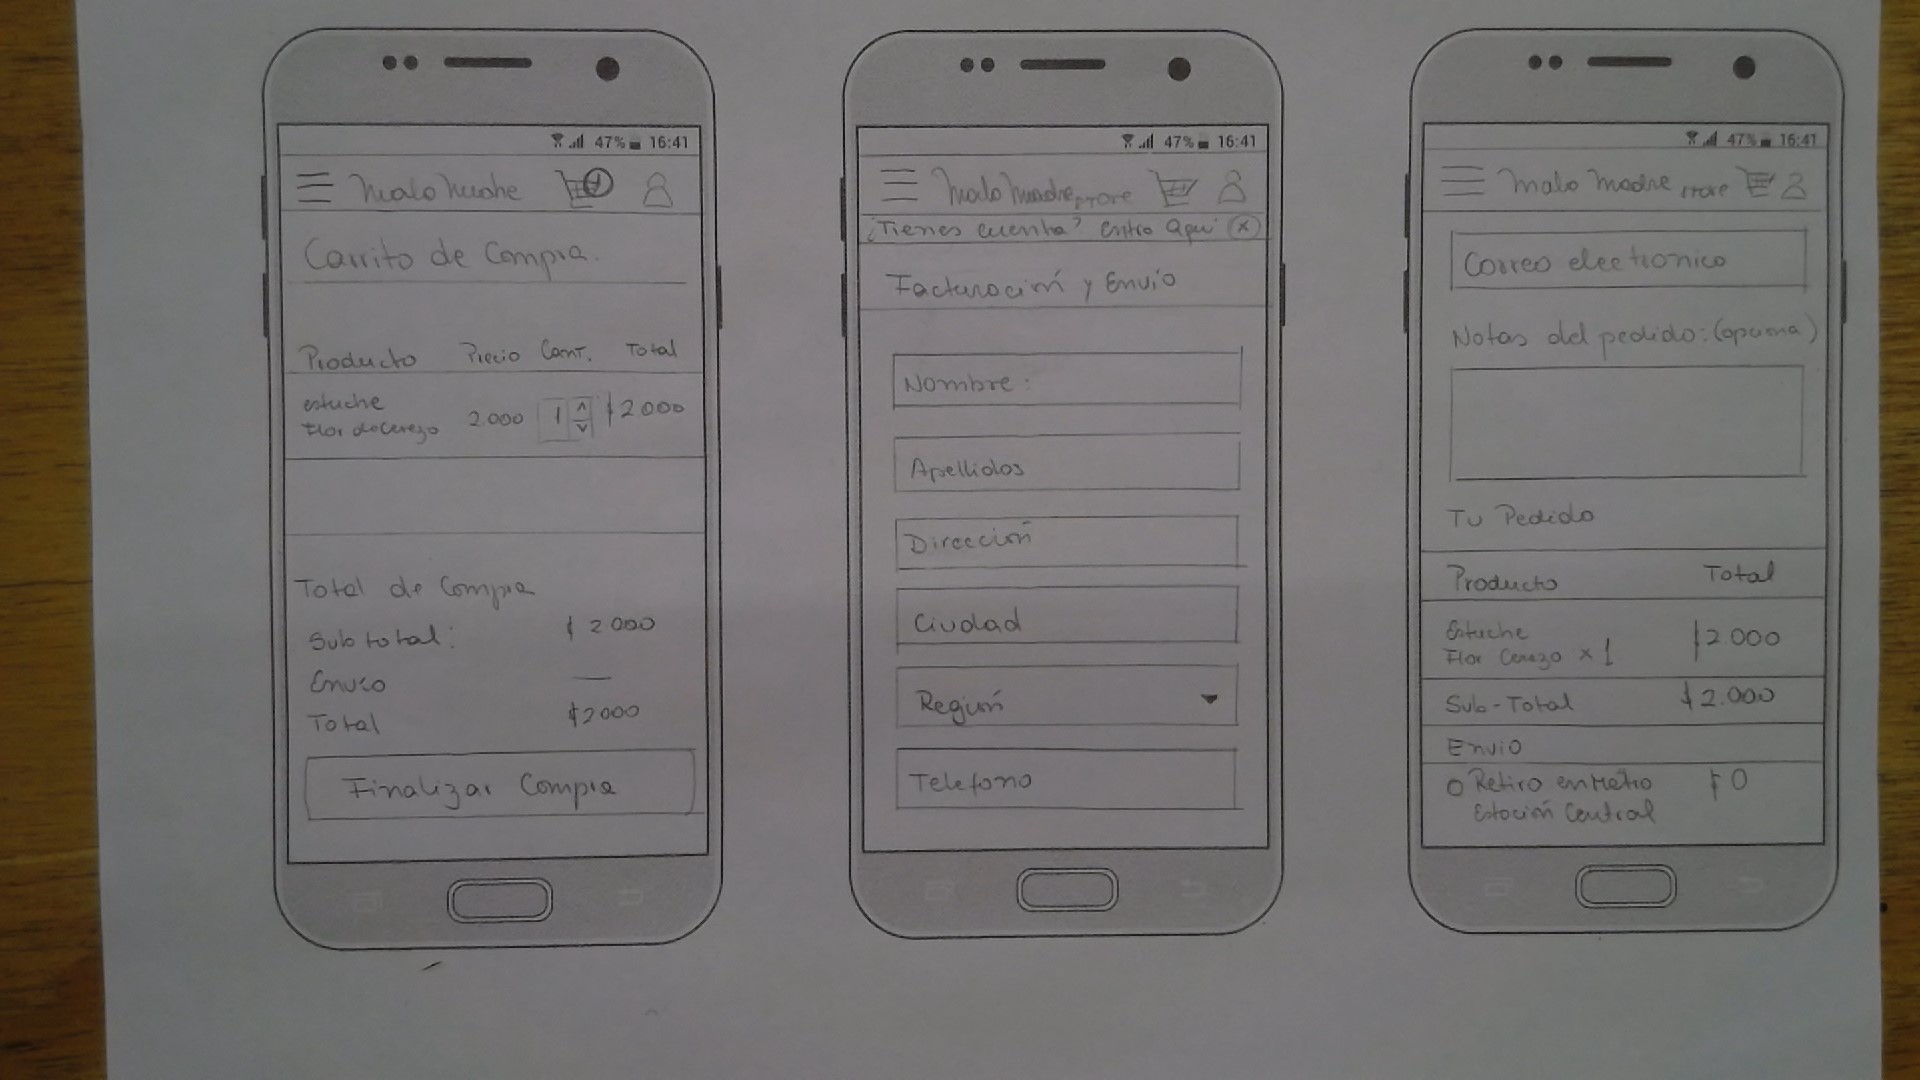 47% 16:41
Malo Madre
Carrito de Compra.
Producto Precio Cant. Total
estuche
Flor de Cerezo 2.000 1 $2000
Total de Compra
Sub total: $2000
Envio —
Total $2000
Finalizar Compra
47% 16:41
Malo Madre store
¿Tienes cuenta? Entra Aqui x
Facturación y Envio
Nombre:
Apellidos
Dirección
Ciudad
Región
Telefono
47% 16:41
Malo Madre store
Correo electronico
Notas del pedido: (opciona)
Tu Pedido
Producto Total
Estuche
Flor Cerezo x 1 $2000
Sub-Total $2.000
Envio
Retiro en Metro $0
Estación Central